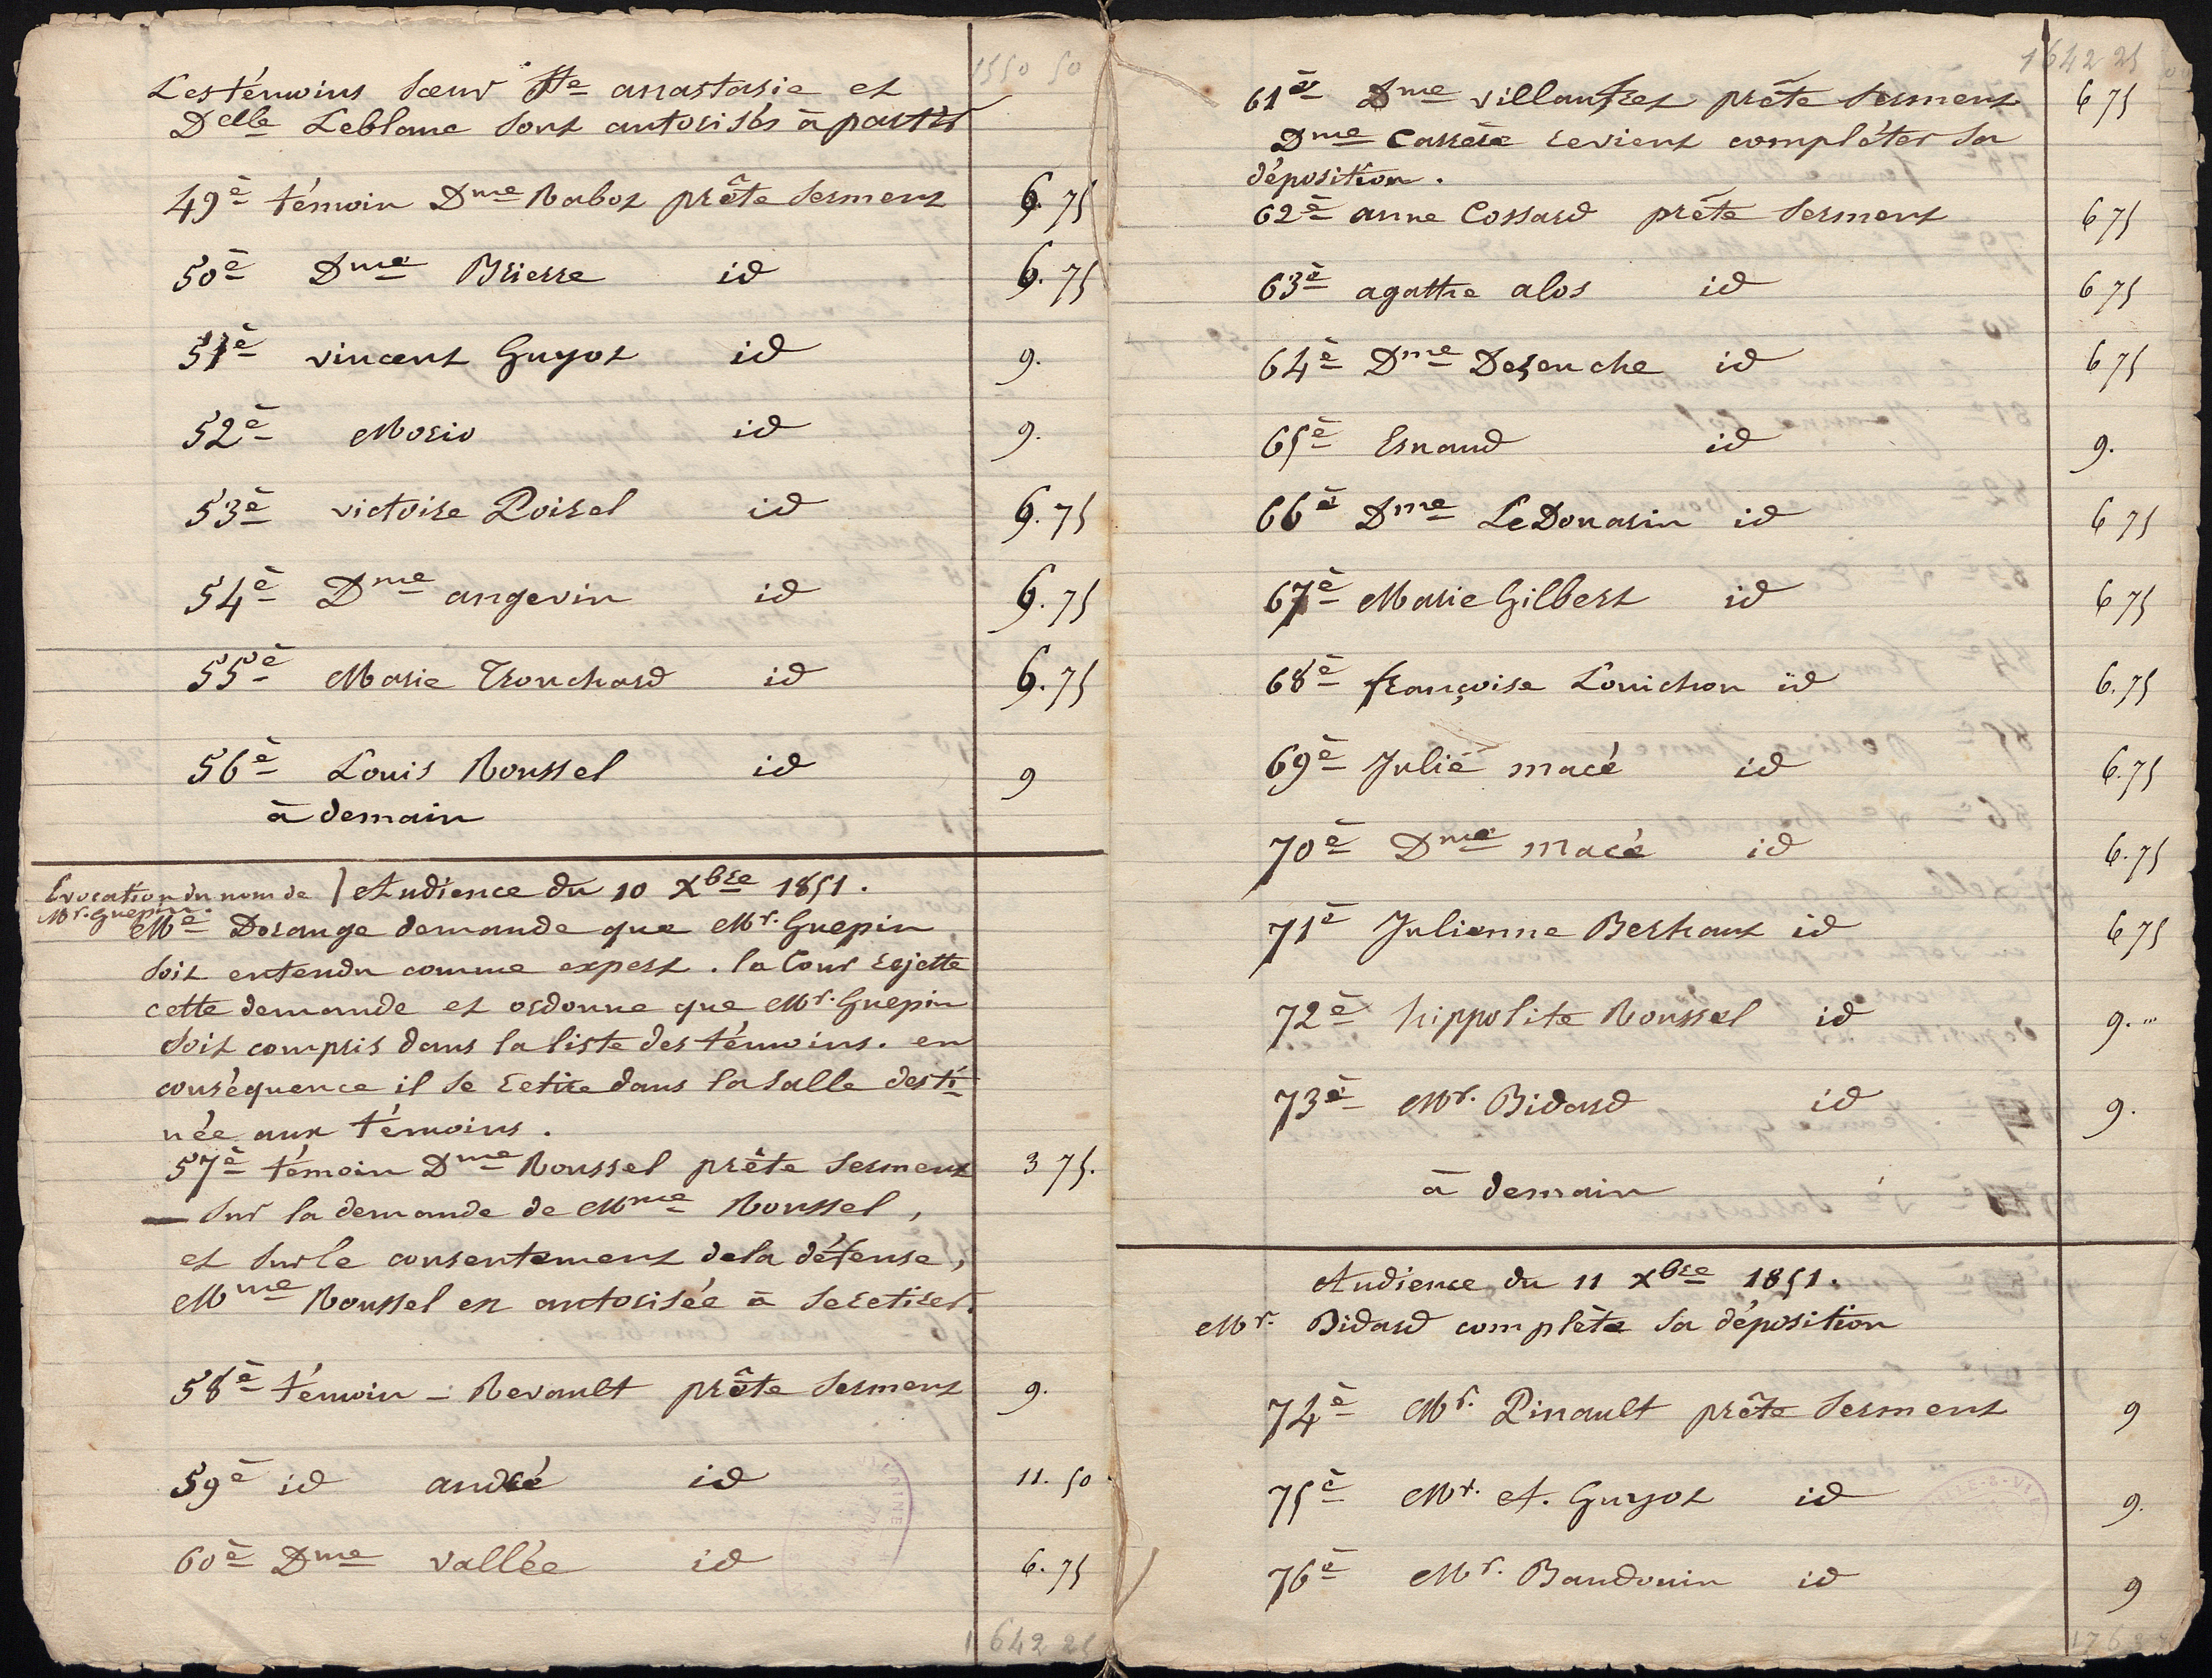 1550 50
Les témoins Sœur Ste anastasie et
Delle Leblanc Sont autorisés à partir
49è témoin Dme Rabot prête Serment 6. 75
50è Dme Brierre id 6. 75
51è vincent Guyot id 9.
52è Morio id 9.
53è victoire Poirel id 6. 75
54è Dme angevin id 6. 75
55è Marie Trouchard id 6. 75
56è Louis Roussel id 9
à demain
Evocation du nom de
Mr. Guepin.
Audience du 10 Xbre 1851.
Me Dorange demande que Mr. Guepin
Soit entendu comme expert. la Cour rejette
cette demande et ordonne que Mr. Guepin
Soit compris dans la liste des témoins. en
conséquence il Se retire dans la Salle desti-
née aux témoins.
57è témoin Dme Roussel prête Serment 3 75.
— Sur la demande de Mme Roussel,
et Sur le consentement de la défense,
Mme Roussel est autorisée à Se retirer.
58è témoin - Revault prête Serment 9.
59è id andré id 11. 50
60è Dme vallée id 6. 75
1642 25
1642 25
61è Dme villautrez prête Serment 6 75
Dme Carrère revient compléter Sa
déposition.
62è anne Cossard prête Serment 6 75
63è agathe alos id 6 75
64è Dme Dezouche id 6 75
65è Esnaud id 9.
66è Dme Le Donarin id 6 75
67è Marie Gilbert id 6 75
68è françoise Louichon id 6. 75
69è Julie macé id 6. 75
70è Dme macé id 6. 75
71è Julienne Berhaut id 6 75
72è hippolite Roussel id 9. "
73è Mr. Bidard id 9.
à demain
Audience du 11 Xbre 1851.
Mr. Bidard complète Sa déposition
74è Mr. Pinault prête Serment 9
75è Mr. A. Guyot id 9.
76è Mr. Baudouin id 9